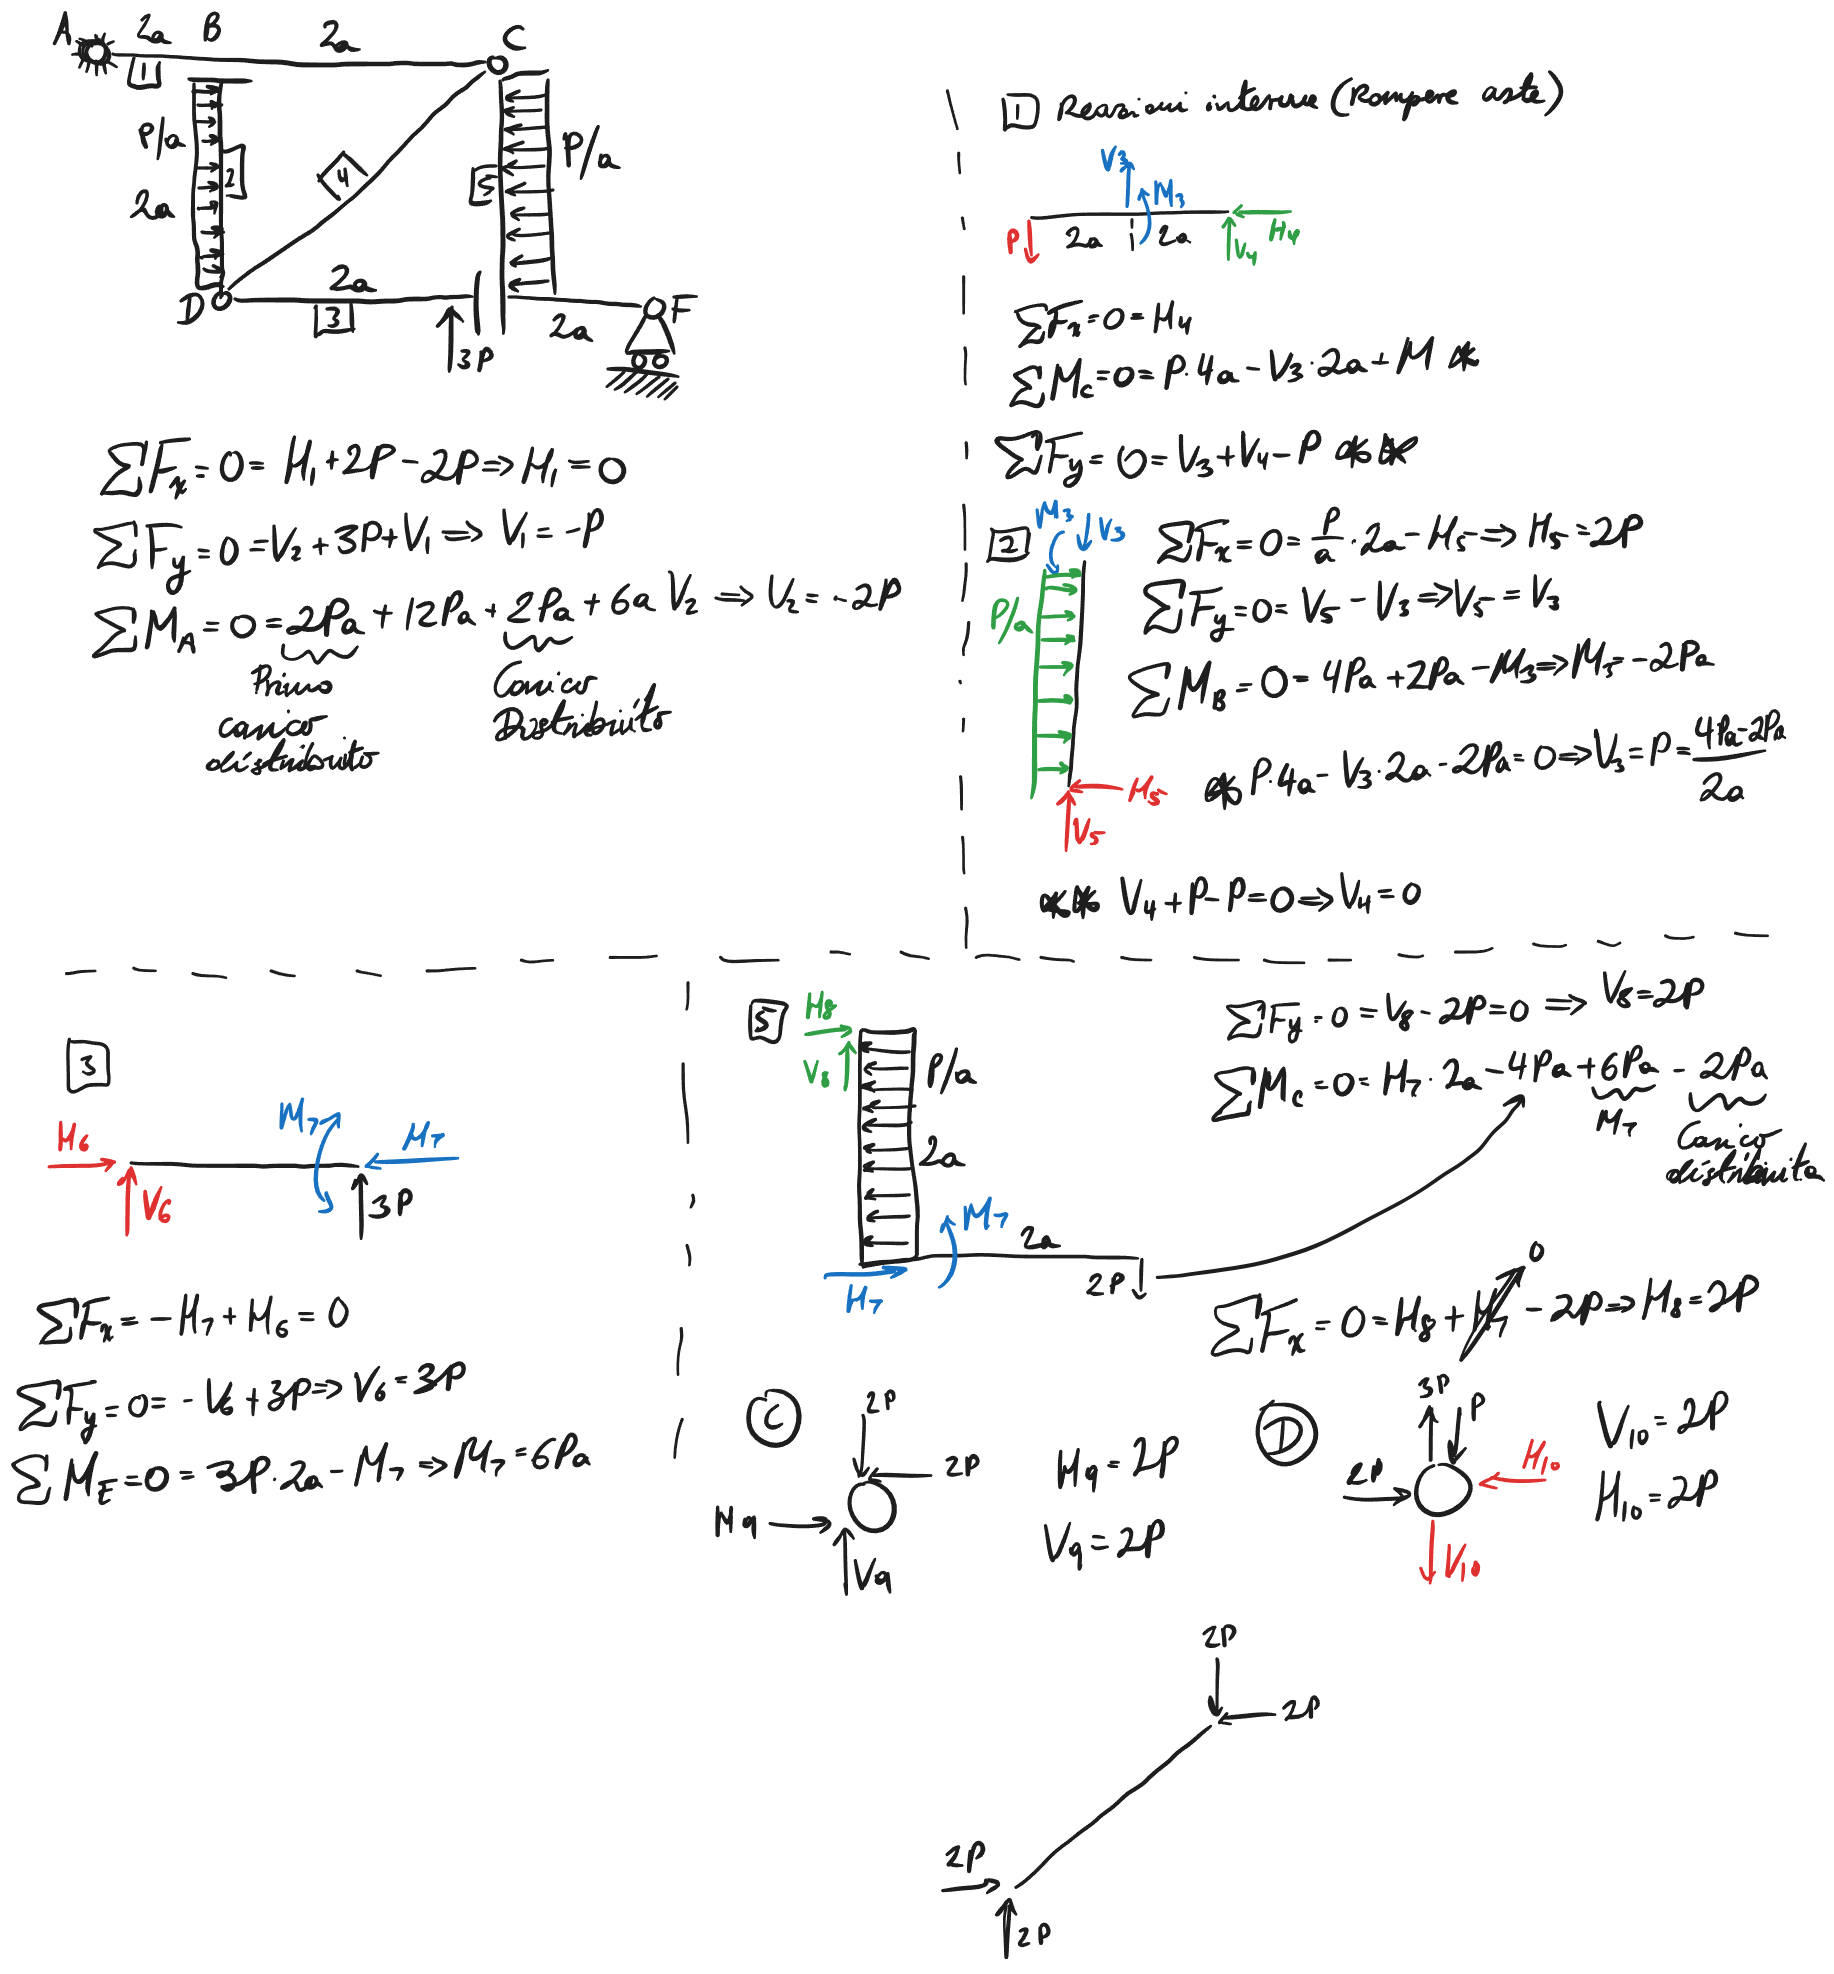 A 2a B 2a C
1
P/a 2 4 5 P/a
2a
D 2a F
3 2a
3P
ΣFx = 0 = H1 + 2P - 2P => H1 = 0
ΣFy = 0 = V2 + 3P + V1 => V1 = -P
ΣMA = 0 = 2Pa + 12Pa + 2Pa + 6a V2 => V2 = -2P
Primo
carico
distribuito
Carico
Distribuito
1 Reazioni interne (Rompere aste)
V3 M3
P 2a 2a V4 H4
ΣFx = 0 = H4
ΣMc = 0 = P·4a - V3·2a + M *
ΣFy = 0 = V3 + V4 - P **
2 M3 V3
P/a
H5
V5
ΣFx = 0 = P/a · 2a - H5 => H5 = 2P
ΣFy = 0 = V5 - V3 => V5 = V3
ΣMB = 0 = 4Pa + 2Pa - M3 => M3 = -2Pa
* P·4a - V3·2a - 2Pa = 0 => V3 = P = (4Pa - 2Pa)/2a
** V4 + P - P = 0 => V4 = 0
3
H6 M7 H7
V6 3P
ΣFx = -H7 + H6 = 0
ΣFy = 0 = -V6 + 3P => V6 = 3P
ΣME = 0 = 3P·2a - M7 => M7 = 6Pa
5 H8
V8 P/a
2a
M7 2a
H7 2P
ΣFy = 0 = V8 - 2P = 0 => V8 = 2P
ΣMc = 0 = H7·2a - 4Pa + 6Pa - 2Pa
M7
Carico
distribuita
0
ΣFx = 0 = H8 + H7 - 2P => H8 = 2P
C 2P
2P
H9
V9
H9 = 2P
V9 = 2P
D 3P P
2P H10
V10
V10 = 2P
H10 = 2P
2P
2P
2P
2P